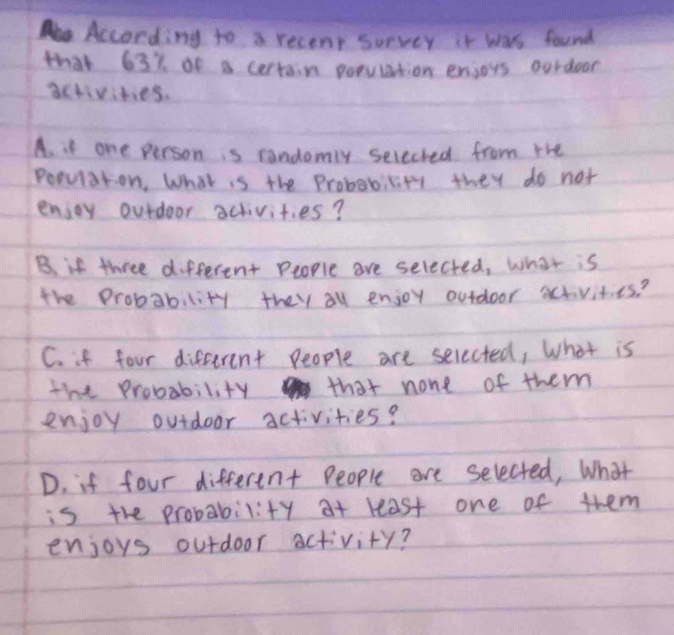 According to a recent survey it was found
that 63% of a certain population enjoys outdoor
activities.
A. if one person is randomly selected from the
Population, what is the Probability they do not
enjoy outdoor activities?
B. if three different people are selected, what is
the Probability they all enjoy outdoor activities?
C. if four different people are selected, what is
the Probability that none of them
enjoy outdoor activities?
D. if four different people are selected, what
is the probability at least one of them
enjoys outdoor activity?